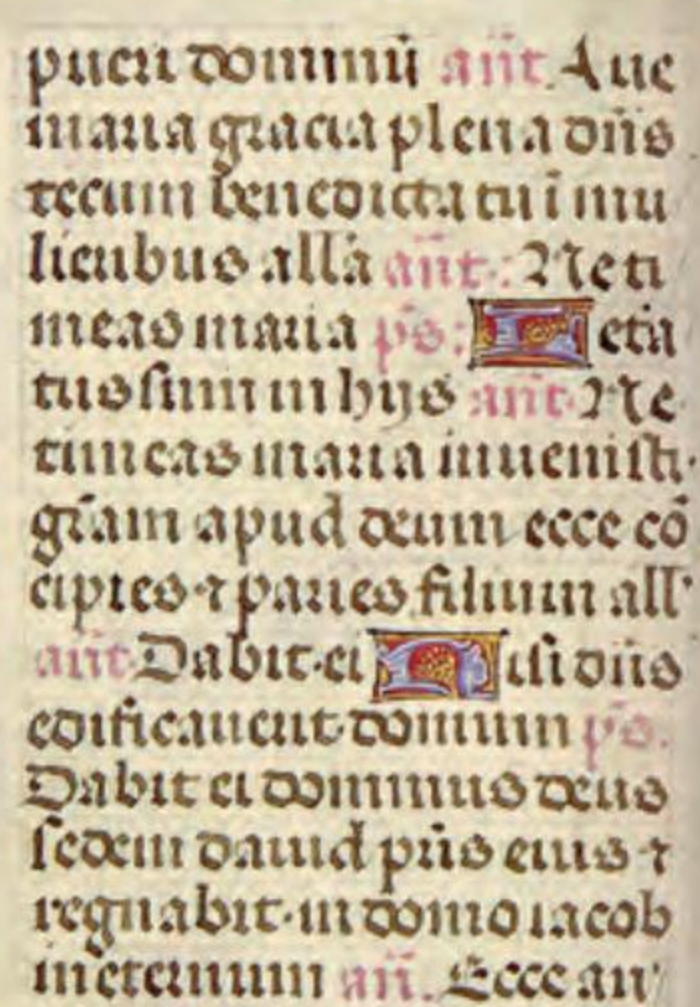 pueri dominū añt. Aue
maria gracia plena dñs
tecum benedicta tu ī mu
lieribus allā añt. Ne ti
meas maria p̄s: Leta
tus sum in hijs añt. Ne
timeas maria inuenisti
gr̄am apud deum ecce cō
cipies ⁊ paries filium all'
añt. Dabit. ei Nisi dñs
edificauerit domum p̄s.
Dabit ei dominus deus
sedem dauid pr̄is eius ⁊
regnabit. in domo iacob
in eternum añ. Ecce an